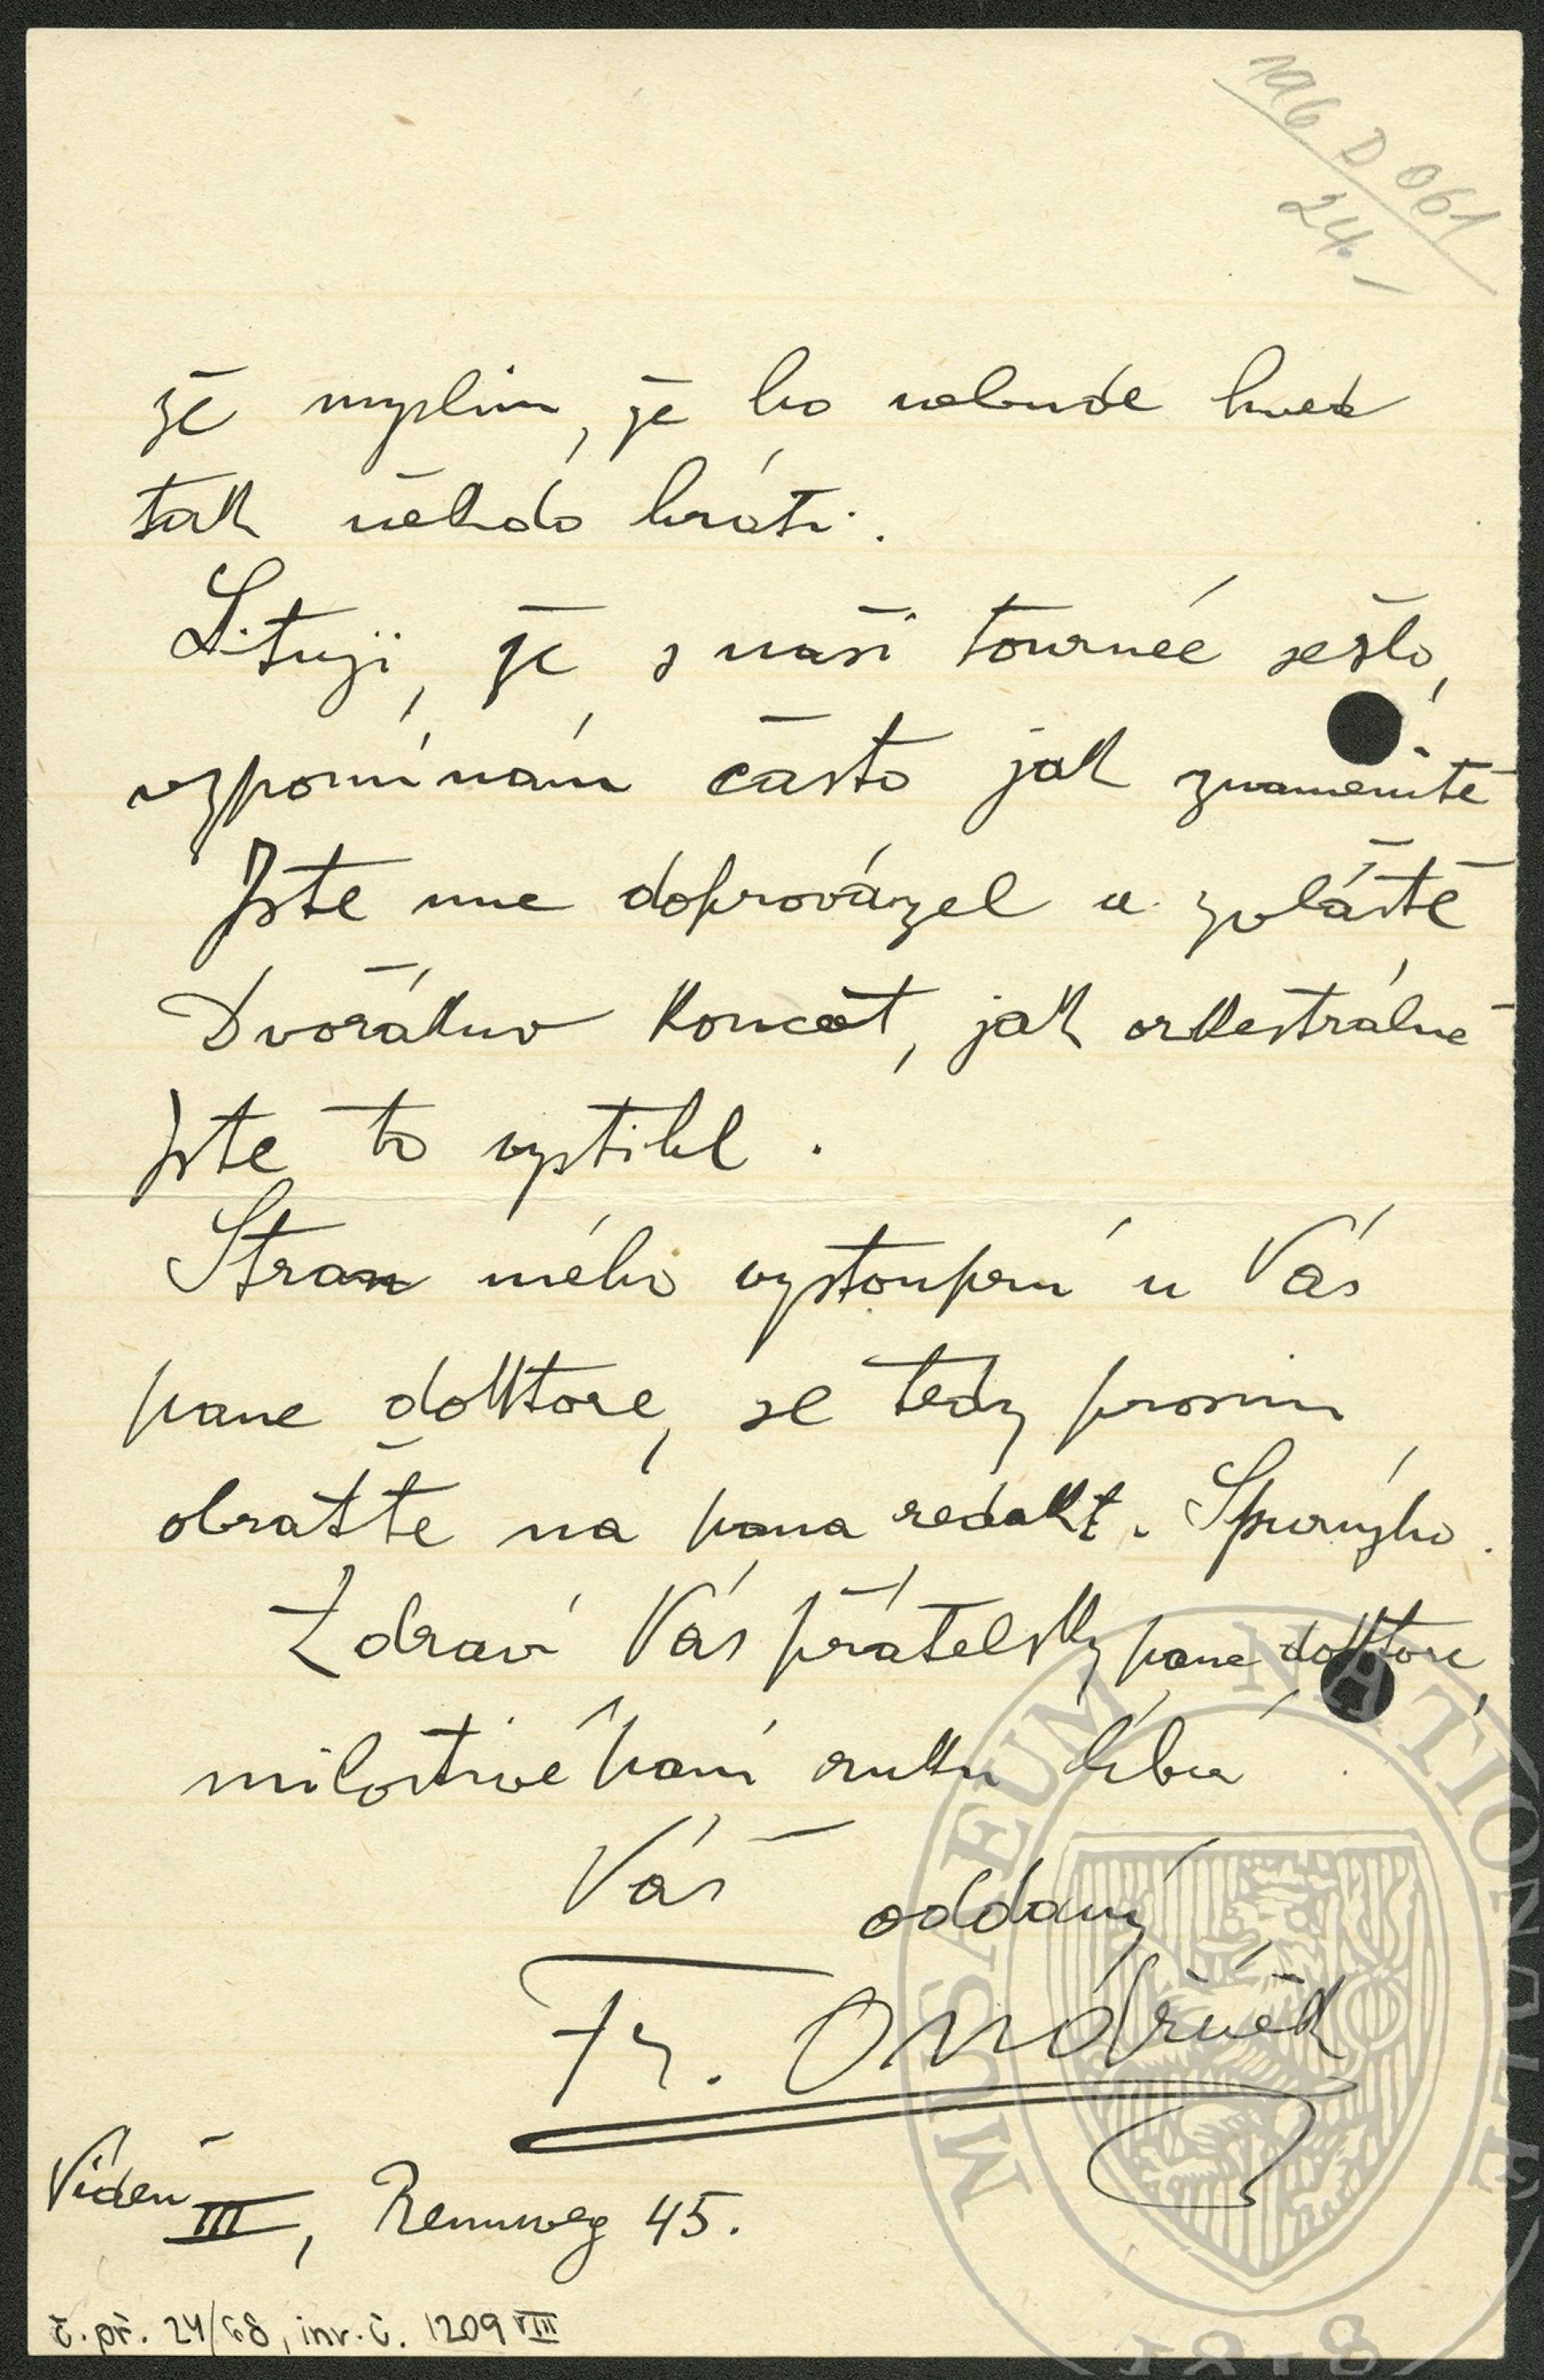 196 D 061
24.-
že myslím, že ho nebude hned
tak někdo hráti.
Lituji, že s naší tournéé sešlo,
vzpomínám často jak znamenitě
Jste mne doprovázel a zvláště
Dvořákuv koncert, jak orkestrálně
Jste to vystihl.
Stran mého vystoupení u Vás
pane doktore, se tedy prosím
obraťte na pana redakt. Spurnýho.
Zdraví Vás přátelsky pane doktore,
milostivé paní ruku líbá
Váš oddaný
Fr. Ondříček
Vídeň III, Rennweg 45.
č. př. 24/68, inv. č. 1209 VIII
MUSAEUM NATIONALE
1818